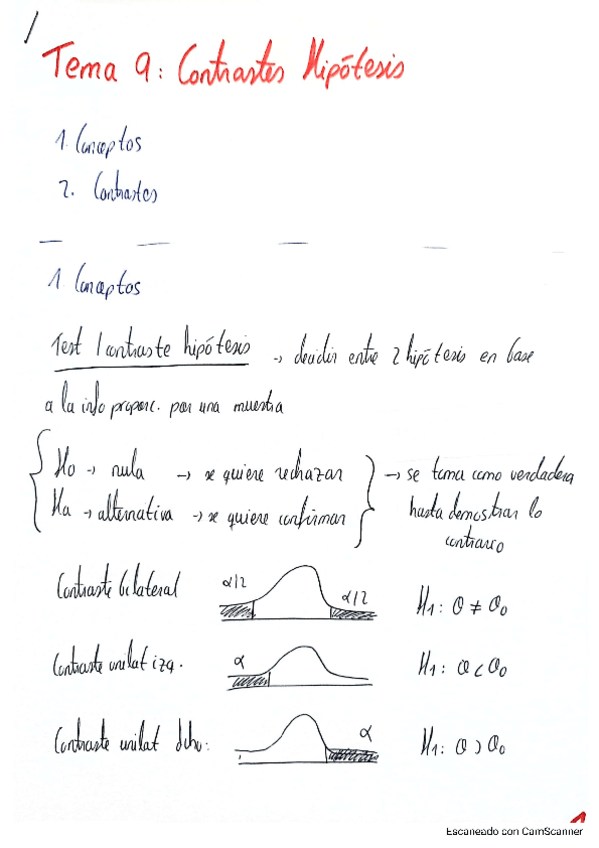 1
Tema 9: Contrastes Hipótesis
1. Conceptos
2. Contrastes
1 Conceptos
Test / contraste hipótesis → decidir entre 2 hipótesis en base
a la info proporc. por una muestra
H0 → nula → se quiere rechazar
Ha → alternativa → se quiere confirmar
→ se toma como verdadera
hasta demostrar lo
contrario
Contraste bilateral α/2 α/2 H1: θ ≠ θ0
Contraste unilat izq. α H1: θ < θ0
Contraste unilat dcho: α H1: θ > θ0
1
Escaneado con CamScanner